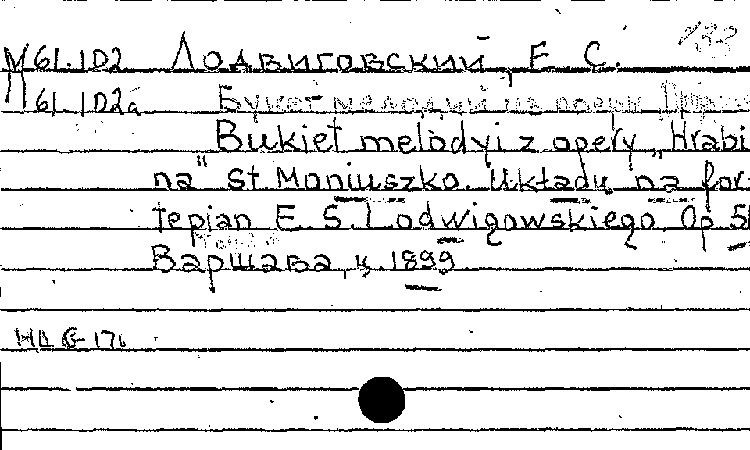 М61.1D2 Лодвиговский, Е. С.
П61.1D2a Букет мелодий из оперы
Bukiet melodyi z opery „Hrabi
na" St. Moniuszko. Układu na for-
tepian E. S. Lodwigowskiego. Op.
Варшава, ц. 1899